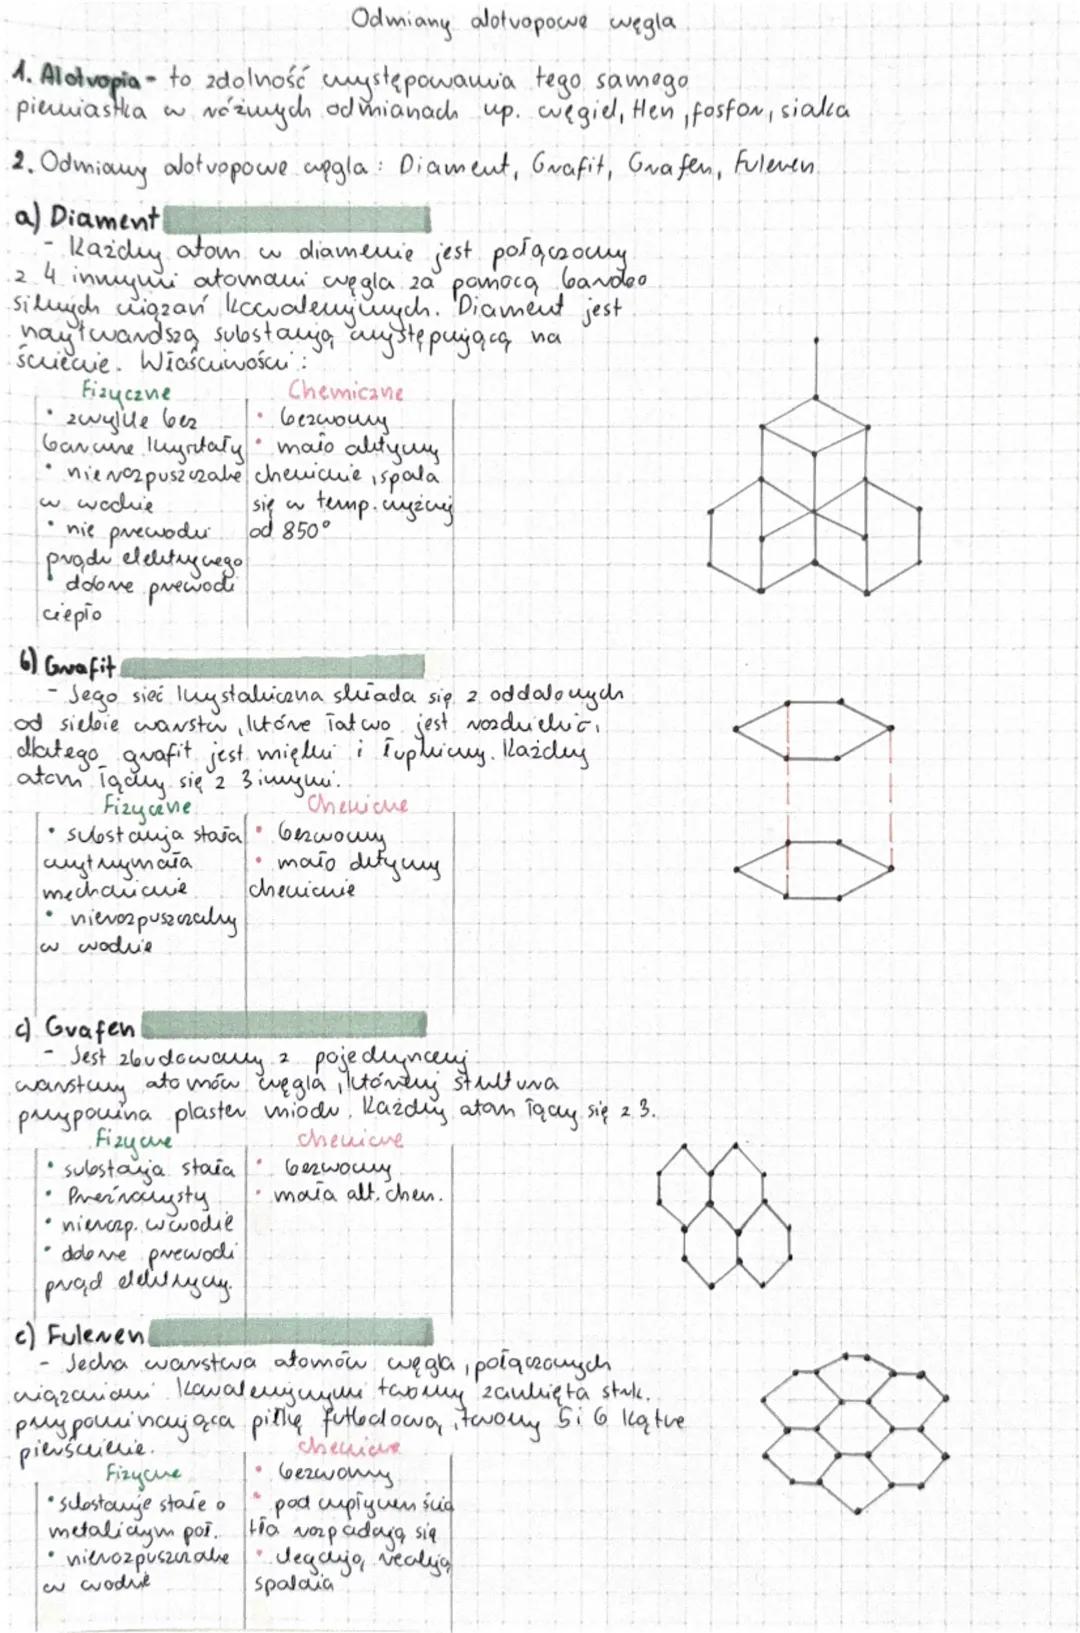 Odmiany alotropowe węgla
1. Alotropia - to zdolność występowania tego samego
pierwiastka w różnych odmianach np. węgiel, tlen, fosfor, siarka
2. Odmiany alotropowe węgla: Diament, Grafit, Grafen, Fuleren
a) Diament
- Każdy atom w diamencie jest połączony
z 4 innymi atomami węgla za pomocą bardzo
silnych wiązań kowalencyjnych. Diament jest
najtwardszą substancją występującą na
świecie. Właściwości:
Fizyczne
• zwykle bez
barwne kryształy
• nierozpuszczalne
w wodzie
• nie przewodzi
prądu elektrycznego
• dobrze przewodzi
ciepło
Chemiczne
• bezwonny
• mało aktywny
chemicznie, spala
się w temp. wyższej
od 850°
b) Grafit
- Jego sieć krystaliczna składa się z oddalonych
od siebie warstw, które łatwo jest rozdzielić,
dlatego grafit jest miękki i łupliwy. Każdy
atom łączy się z 3 innymi.
Fizyczne
• substancja stała
wytrzymała
mechanicznie
• nierozpuszczalny
w wodzie
Chemiczne
• bezwonny
• mało aktywny
chemicznie
c) Grafen
- Jest zbudowany z pojedynczej
warstwy atomów węgla, której struktura
przypomina plaster miodu. Każdy atom łączy się z 3.
Fizyczne
• substancja stała
• Przeźroczysty
• nierozp. w wodzie
• dobrze przewodzi
prąd elektryczny.
chemiczne
• bezwonny
• mała akt. chem.
c) Fuleren
- Jedna warstwa atomów węgla, połączonych
wiązaniami kowalencyjnymi tworzy zamkniętą struk.
przypominającą piłkę futbolową, tworzy 5 i 6 kątne
pierścienie.
Fizyczne
• substancje stałe o
metalicznym poł.
• nierozpuszczalne
w wodzie
chemiczne
• bezwonny
• pod wpływem świa
tła rozpadają się
• Ulegają reakcją
spalania